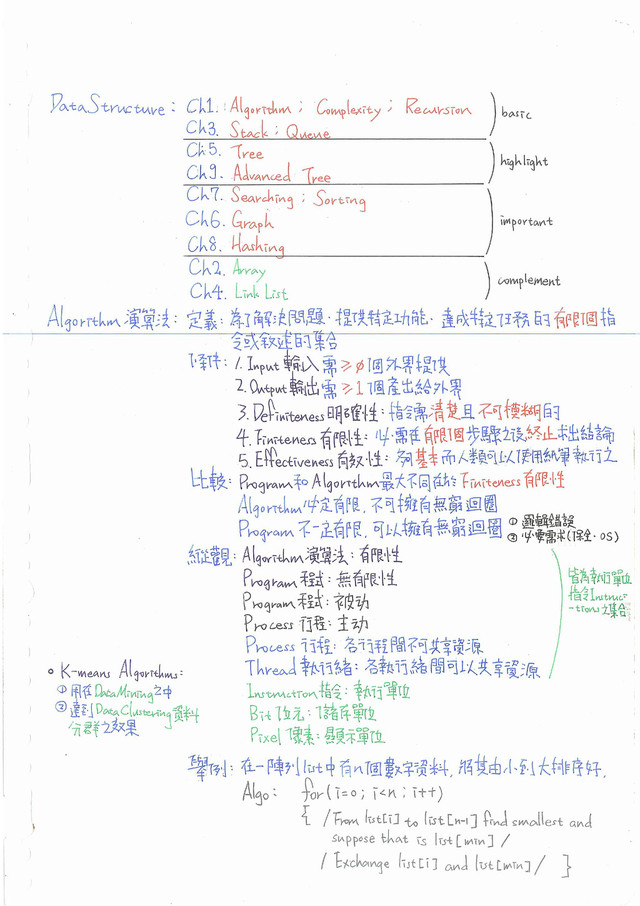 Data Structure: Ch1.: Algorithm; Complexity; Recursion
basic
Ch3. Stack; Queue
Ch5. Tree
highlight
Ch9. Advanced Tree
Ch7. Searching; Sorting
Ch6. Graph
important
Ch8. Hashing
Ch2. Array
complement
Ch4. Link List
Algorithm 演算法: 定義: 為了解決問題、提供特定功能、達成特定任務的有限個指
令或敘述的集合
條件: 1. Input 輸入需 ≥ 0 個外界提供
2. Output 輸出需 ≥ 1 個產出給外界
3. Definiteness 明確性: 指令需清楚且不可模糊的
4. Finiteness 有限性: 必需在有限個步驟之後終止求出結論
5. Effectiveness 有效性: 夠基本而人類可以使用紙筆執行之
比較: Program 和 Algorithm 最大不同在於 Finiteness 有限性
Algorithm 必定有限, 不可擁有無窮迴圈
Program 不一定有限, 可以擁有無窮迴圈
① 邏輯錯誤
② 必要需求(保全、OS)
縱觀: Algorithm 演算法: 有限性
Program 程式: 無有限性
Program 程式: 被动
Process 行程: 主动
Process 行程: 各行程間不可共享資源
Thread 執行緒: 各執行緒間可以共享資源
皆為執行單位
指令 Instruc-
-tions 之集合
Instruction 指令: 執行單位
Bit 位元: 儲存單位
Pixel 像素: 顯示單位
K-means Algorithms:
① 用在 Data Mining 之中
② 達到 Data Clustering 資料
分群之效果
舉例: 在一陣列 list 中有 n 個數字資料, 將其由小到大排序好.
Algo: for(i=0; i<n; i++)
{ /From list[i] to list[n-1] find smallest and
suppose that is list[min] /
/ Exchange list[i] and list[min] / }